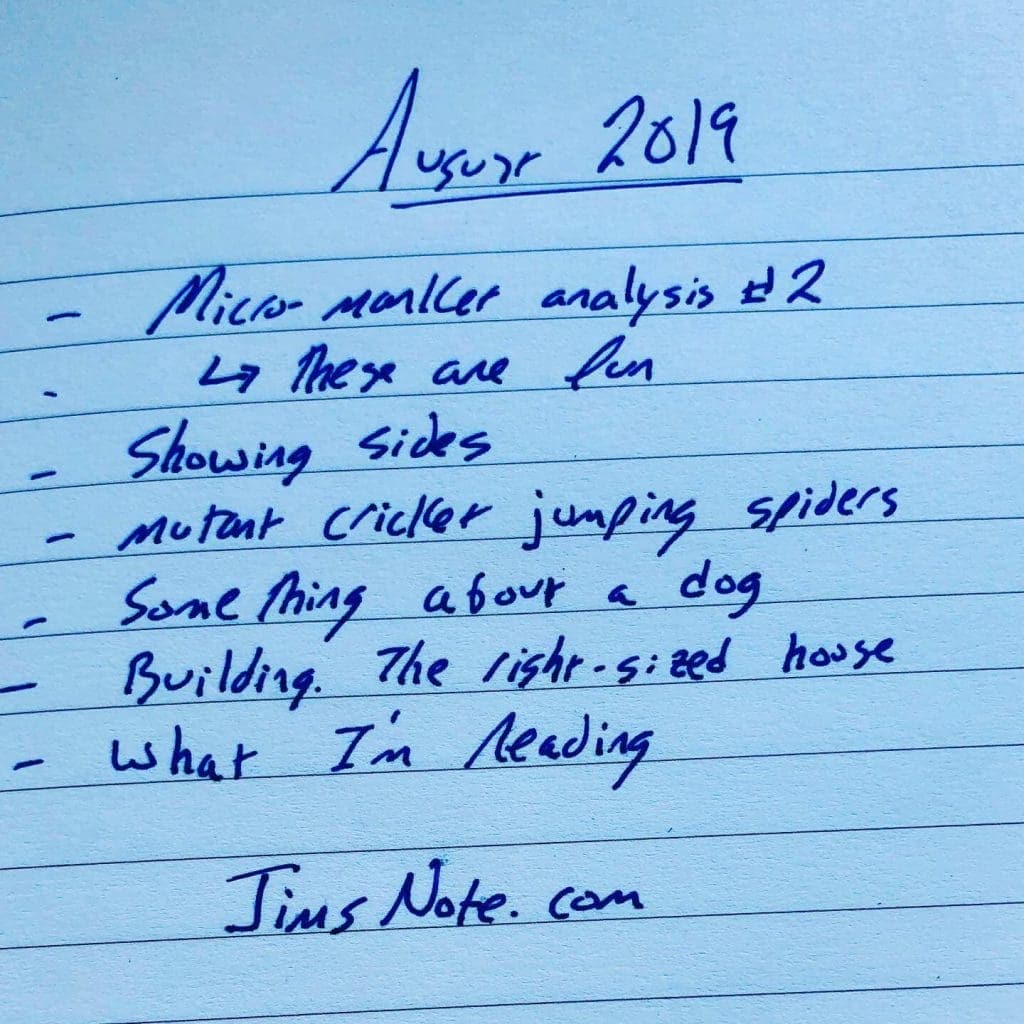 August 2019
- Micro-market analysis #2
- ↳ These are fun
- Showing sides
- Mutant cricket jumping spiders
- Something about a dog
- Building. The right-sized house
- What I'm reading
JimsNote.com